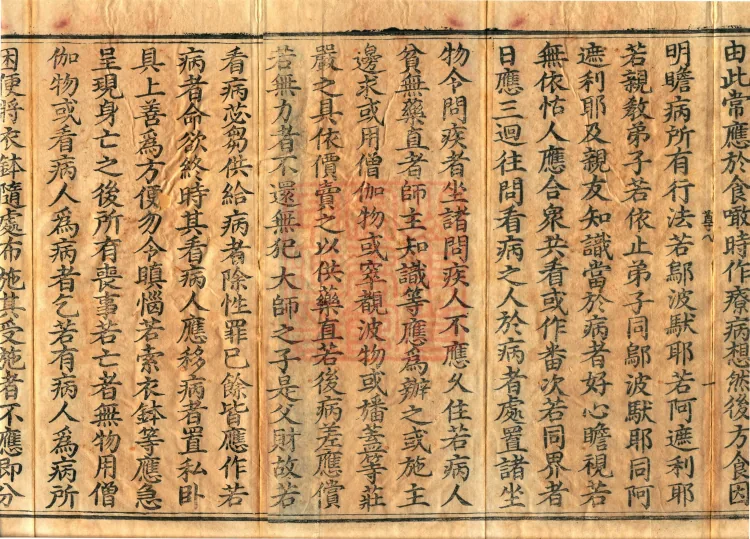 由此常應於食噉時作療病想然後方食因
明瞻病所有行法若鄔波馱耶若阿遮利耶
若親教弟子若依止弟子同鄔波馱耶同阿
遮利耶及親友知識當於病者好心瞻視若
無依怙人應合衆共看或作番次若同界者
日應三迴往問看病之人於病者處置諸坐
物令問疾者坐諸問疾人不應久住若病人
貧無藥直者師主知識等應爲辦之或施主
邊求或用僧伽物或窣覩波物或旛蓋等莊
嚴之具依價賣之以供藥直若後病差應償
若無力者不還無犯大師之子是父財故若
看病苾芻供給病者除性罪已餘皆應作若
病者命欲終時其看病人應移病者置私卧
具上善爲方便勿令瞋惱若索衣鉢等應急
呈現身亡之後所有喪事若亡者無物用僧
伽物或看病人爲病者乞若有病人爲病所
困便將衣鉢隨處布施其受施者不應即分